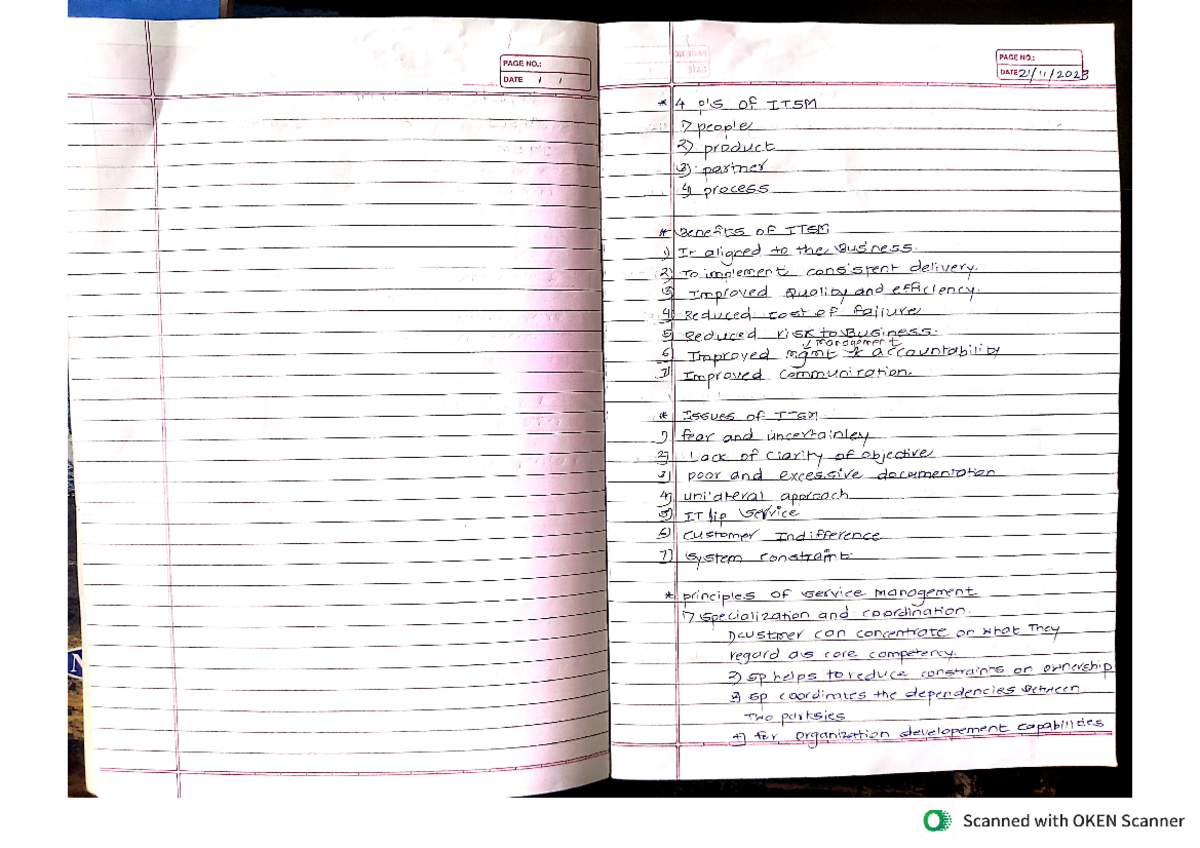 PAGE NO.:
DATE / /
PAGE NO.:
DATE 21/11/2023
* 4 p's of ITSM
1) people
2) product
3) partner
4) process
* Benefits of ITSM
1) It aligned to the Business.
2) To implement consistent delivery.
3) Improved Quality and efficiency.
4) Reduced cost of failure
5) Reduced risk to Business.
management
6) Improved mgmt & accountability
7) Improved communication.
* Issues of ITSM
1) fear and uncertainley
2) Lack of clarity of objective
3) poor and excessive documentation
4) unilateral approach
5) IT lip service
6) customer Indifference
7) system constraint.
* principles of service management.
1) specialization and coordination.
1) customer can concentrate on what They
regard as core competency.
2) sp helps to reduce constraints on ownership
3) sp coordinates the dependencies between
Two parties
4) for organization developement capabilities
N
Scanned with OKEN Scanner